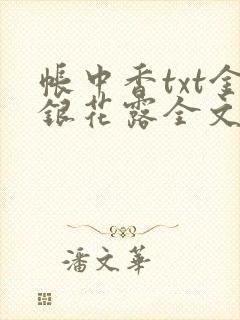 帳中香txt金
銀花露全文
潘文華